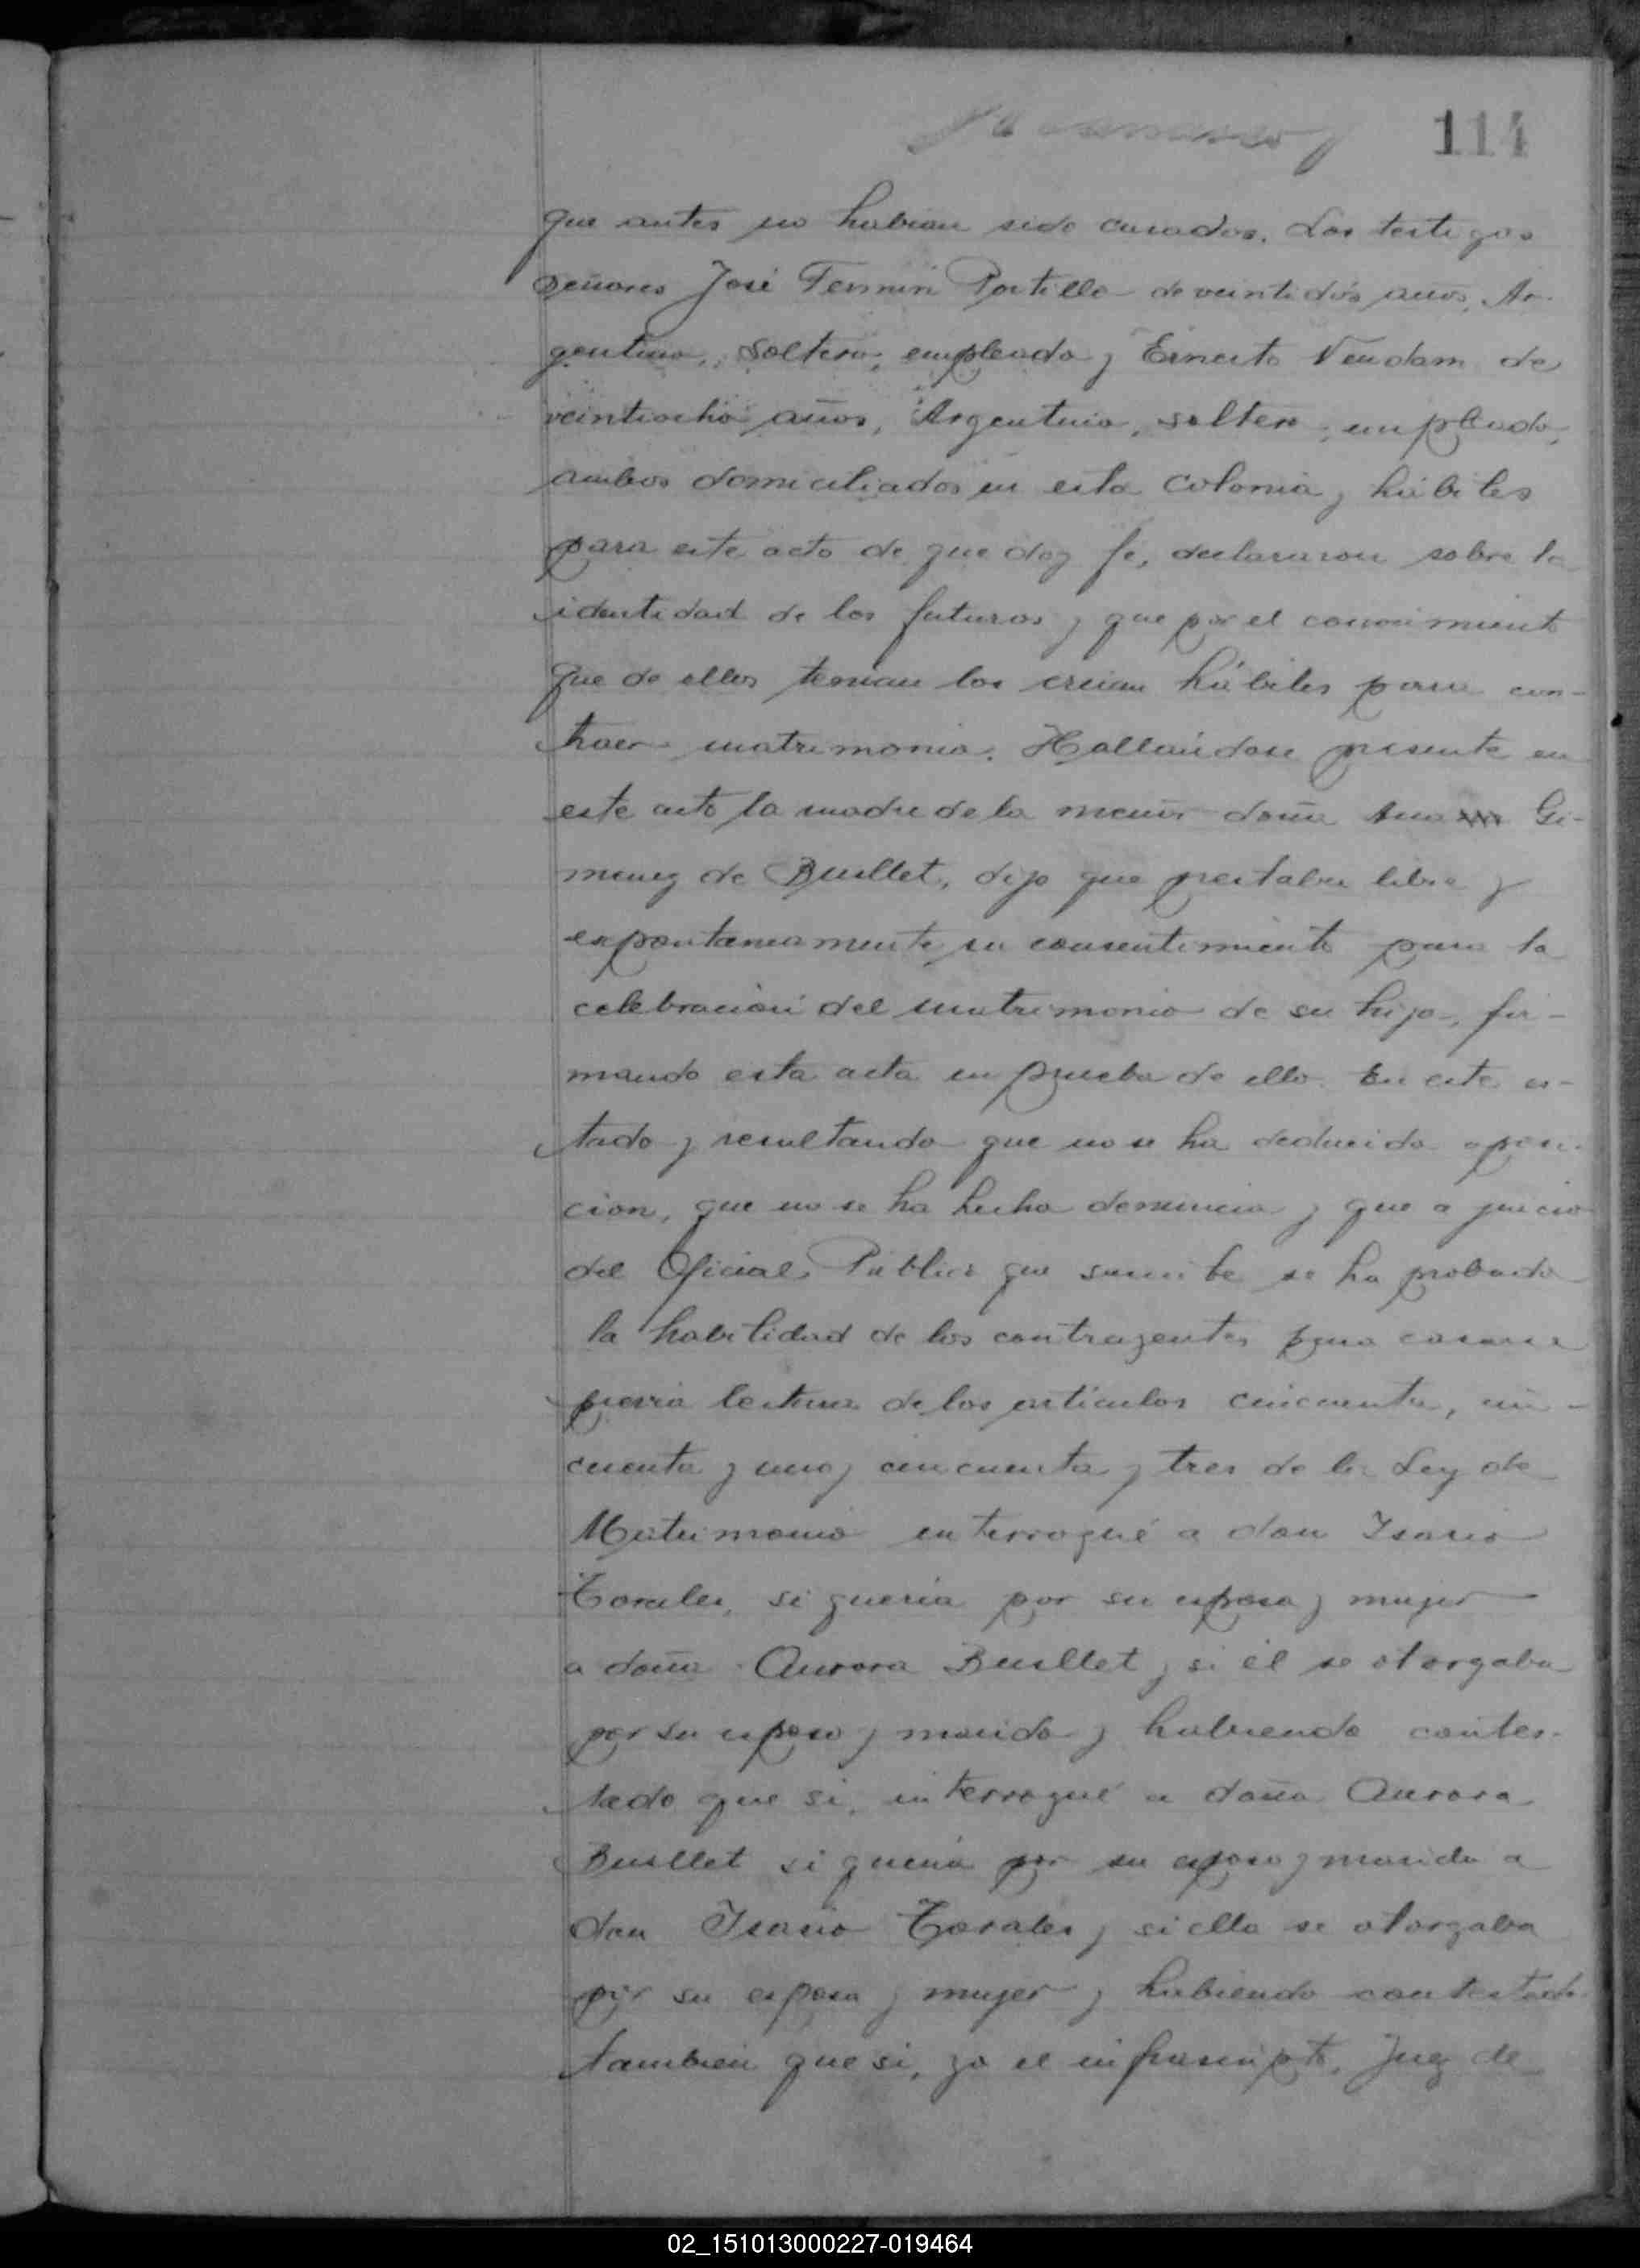 114
que antes no habian sido casados. Los testigos
señores José Fermin Portillo de veintidós años, Ar-
gentino, soltero, empleado y Ernesto Vendam de
veintiocho años, Argentino, soltero, empleado,
ambos domiciliados en esta Colonia y hábiles
para este acto de que doy fé, declararon sobre la
identidad de los futuros y que por el conocimiento
que de ellos tenian los creian hábiles para con-
traer matrimonio. Hallándose presente en
este acto la madre de la menor doña Ana Gi-
menez de Buillet, dijo que prestaba libre y
expontaneamente su consentimiento para la
celebración del matrimonio de su hija, fir-
mando esta acta en prueba de ello. En este es-
tado y resultando que no se ha deducido oposi-
cion, que no se ha hecho denuncia y que a juicio
del Oficial Público que suscribe se ha probado
la habilidad de los contrayentes para casarse
previa lectura de los artículos cincuenta, cin-
cuenta y uno y cincuenta y tres de la Ley de
Matrimonio interrogué a don Isario
Torales, si queria por su esposa y mujer
a doña Aurora Buillet y si él se otorgaba
por su esposo y marido y habiendo contes-
tado que si, interrogué a doña Aurora
Buillet si queria por su esposo y marido a
don Isario Torales y si ella se otorgaba
por su esposa y mujer y habiendo contestado
tambien que si, yo el infrascripto, Juez de
02_151013000227-019464